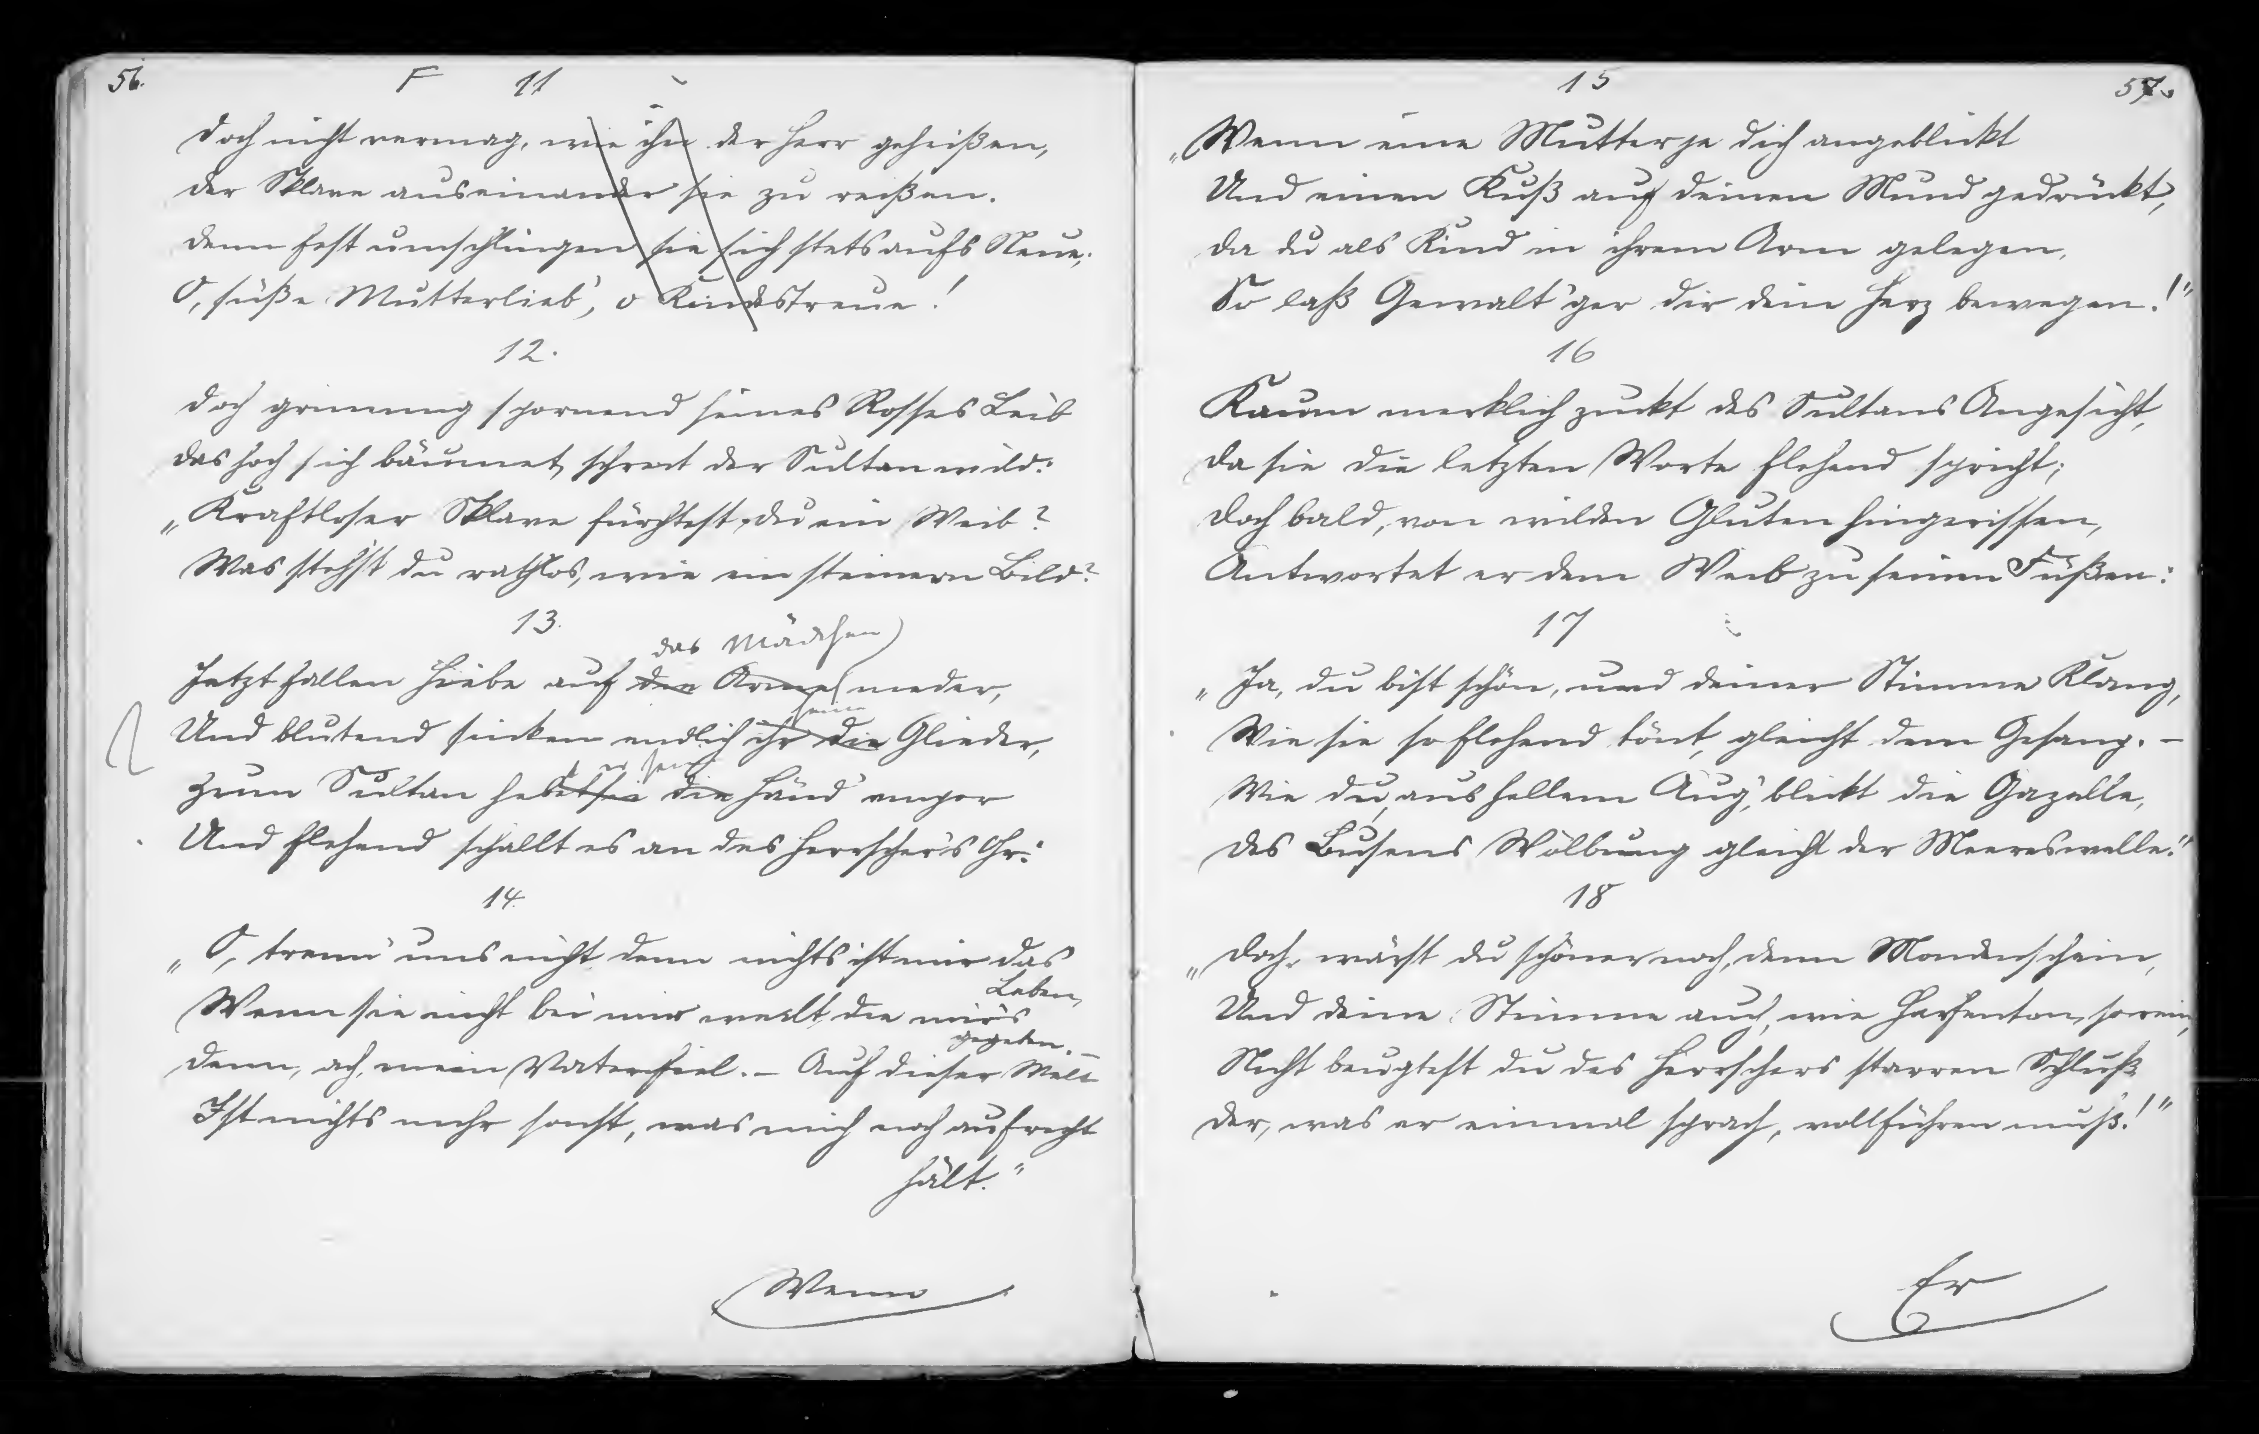 56.
F 11
Doch nicht vermag, wie ihn der Herr geheißen,
Der Sklave auseinander sie zu reißen.
Denn fest umschlingen sie sich stets aufs Neue,
O, süße Mutterlieb', o Kindstreue!
12.
Doch grimmig spornend seines Rosses Leib
Das hoch sich bäumet, schreit der Sultan wild:
„Kraftloser Sklave fürchtest du ein Weib?
Was stehst du rathlos, wie ein steinern Bild?
13.
das Mädchen
Jetzt fallen Hiebe auf die Arme nieder,
Und blutend sinken endlich ihr die Glieder,
Zum Sultan hebet sie die Händ' empor
Und flehend schallt es an des Herrscher's Ohr:
14.
„O, trenn' uns nicht denn nichts ist mir das
Leben,
Wenn sie nicht bei mir weilt die mir's
gegeben. –
Denn, ach, mein Vater fiel. – Auf dieser Welt
Ist nichts mehr sonst, was mich noch aufrecht
hält."
Wenn
15
57.
„Wenn eine Mutter je dich angeblickt
Und einen Kuß auf deinen Mund gedrückt,
Da du als Kind in ihrem Arm gelegen,
So laß Gewalt'ger dir dein Herz bewegen!"
16
Kaum merklich zuckt des Sultans Angesicht,
Da sie die letzten Worte flehend spricht;
Doch bald, von wilden Gluten hingerissen,
Antwortet er dem Weib zu seinen Füßen:
17
„Ja, du bist schön, und deiner Stimme Klang,
Wie sie so flehend tönt, gleicht dem Gesang. –
Wie du, aus hellem Aug', blickt die Gazelle,
Des Busens Wölbung gleicht der Meereswelle."
18
„Doch, wärst du schöner noch, denn Mondenschein,
Und deine Stimme auch, wie Harfenton, so rein,
Nicht beugtest du des Herrschers starren Schluß
Der, was er einmal sprach, vollführen muß!"
Er